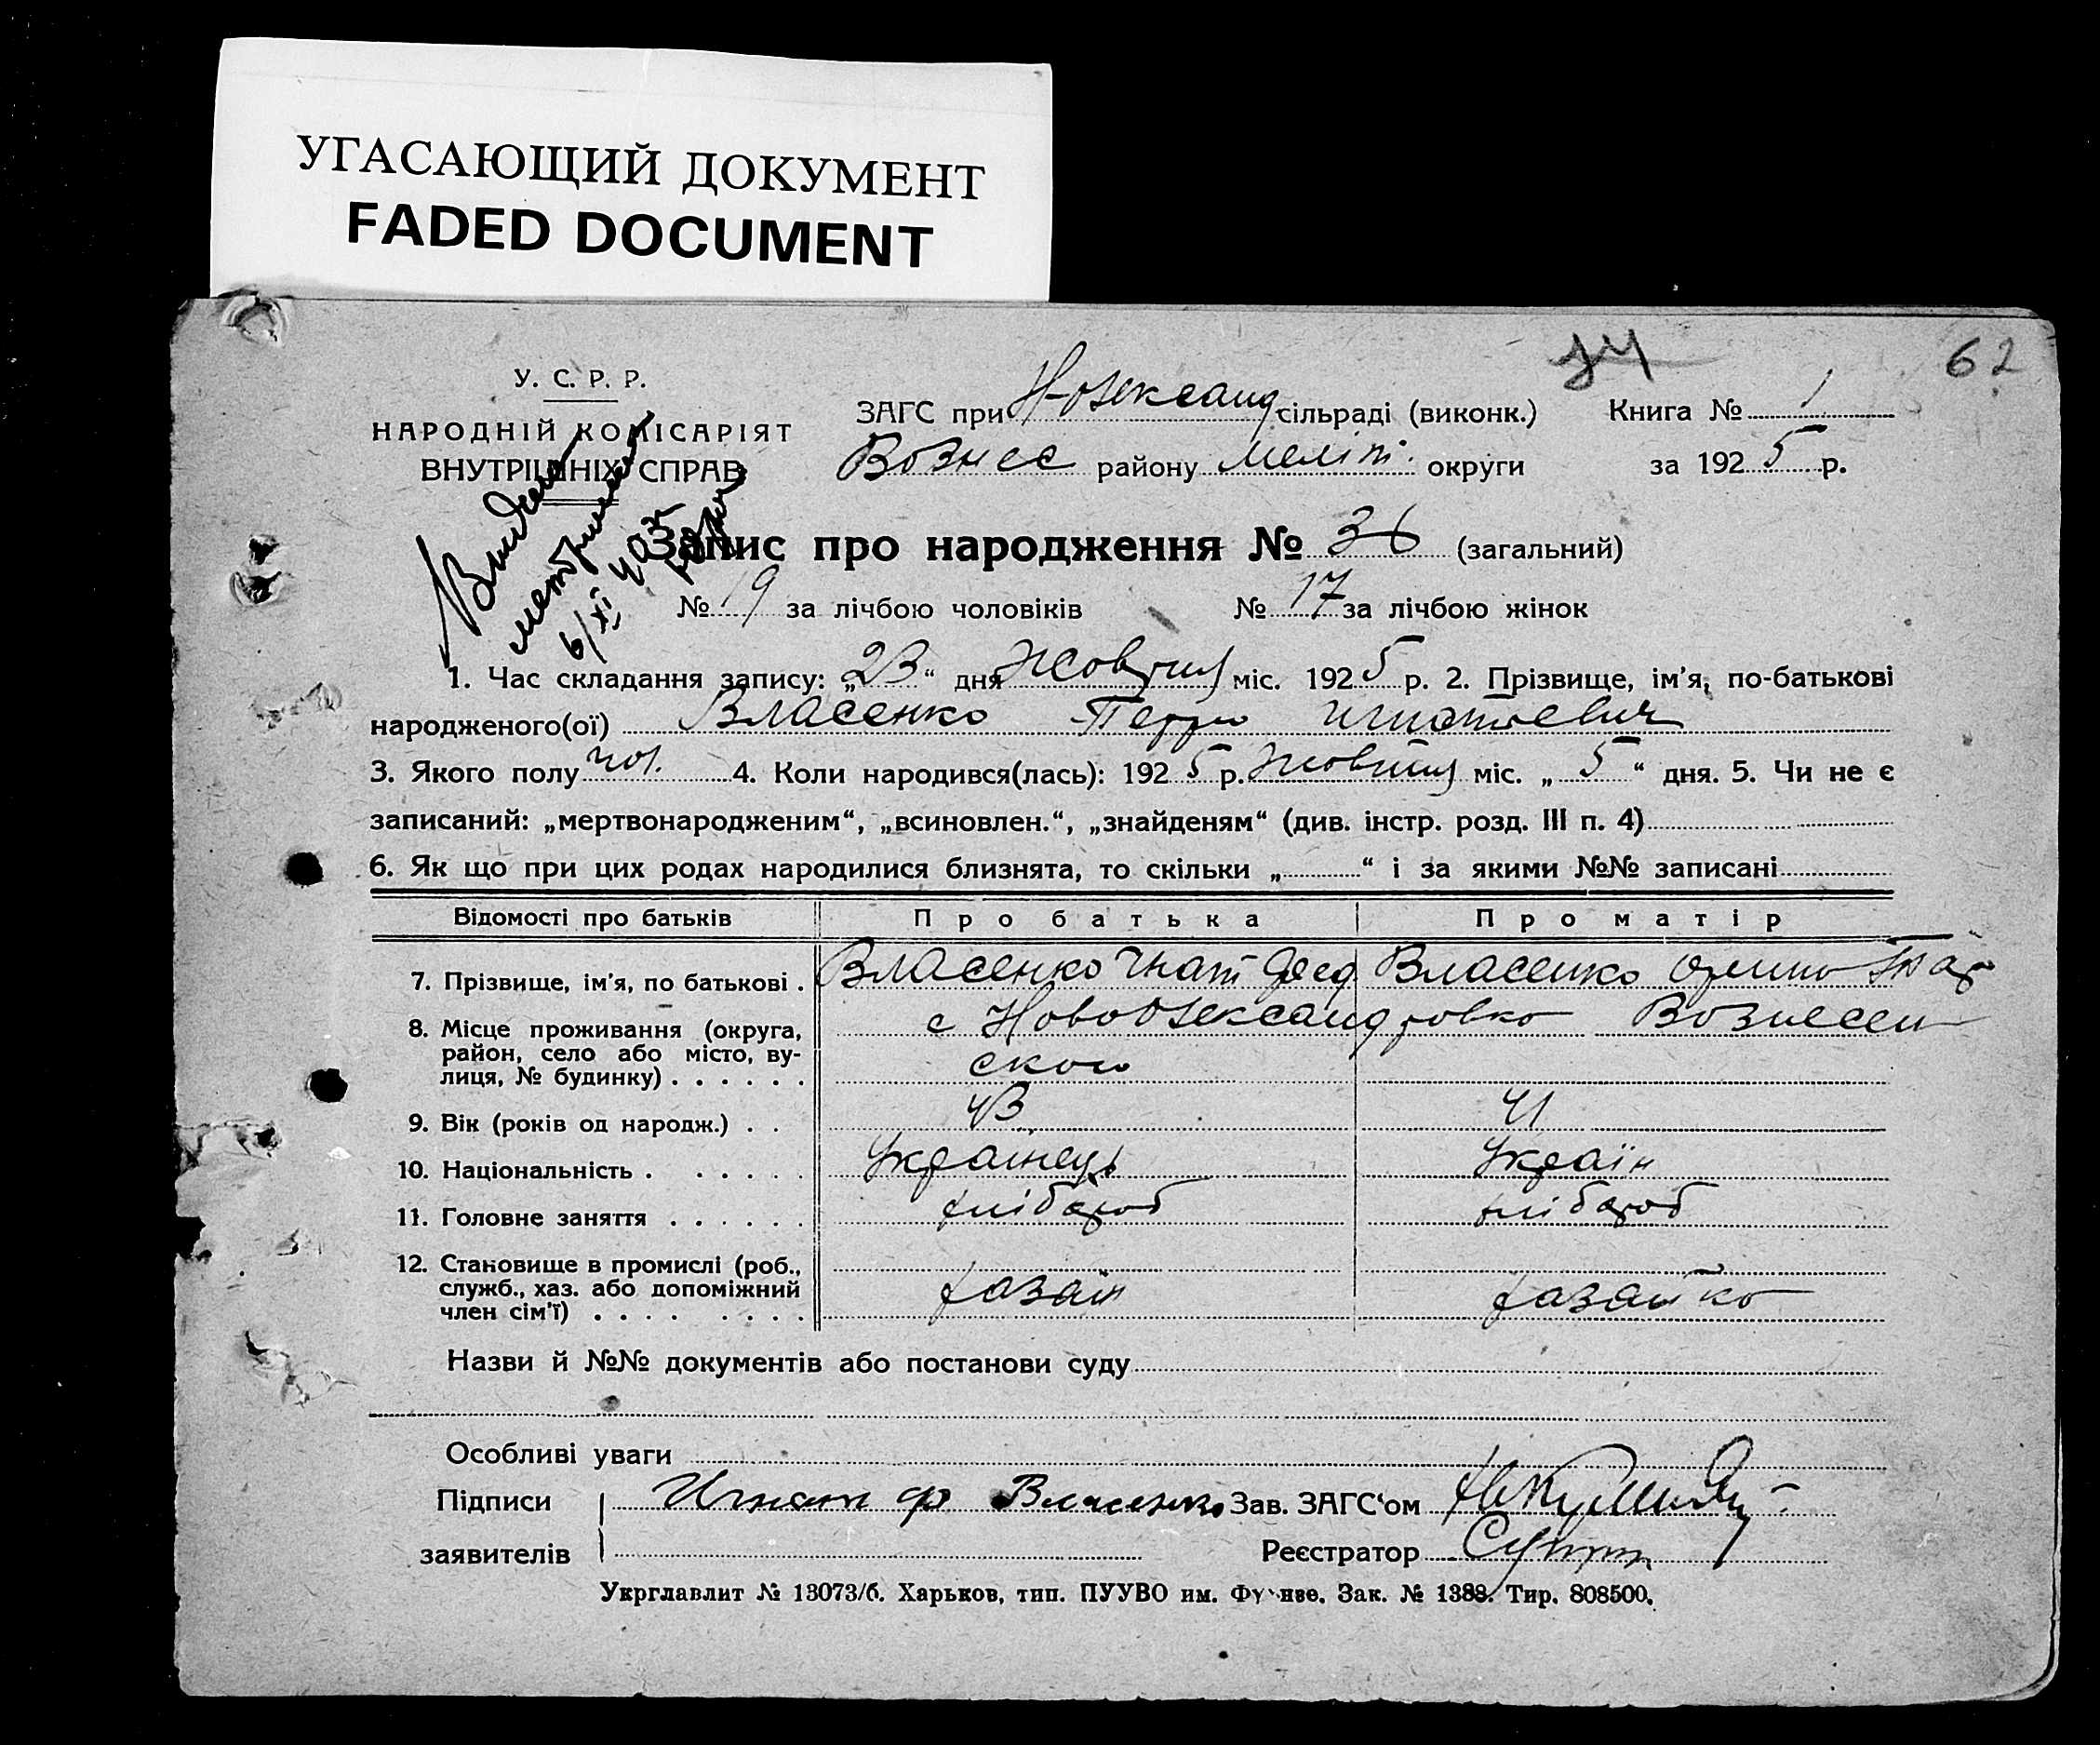 УГАСАЮЩИЙ ДОКУМЕНТ
FADED DOCUMENT
62
У. С. Р. Р.
НАРОДНІЙ КОМІСАРІЯТ
ВНУТРІШНІХ СПРАВ
ЗАГС при Н-Олександ сільраді (виконк.) Книга № 1
Вознес району Меліт. округи за 1925 р.
Видана
метрична
6/XI 40 г.
Запис про народження № 36 (загальний)
№ 19 за лічбою чоловіків № 17 за лічбою жінок
1. Час складання запису: „23“ дня Жовтня міс. 1925 р. 2. Прізвище, ім'я, по-батькові
народженого(ої) Власенко Петро Игнатьевич
3. Якого полу чол. 4. Коли народився(лась): 1925 р. Жовтня міс. „5“ дня. 5. Чи не є
записаний: „мертвонародженим“, „всиновлен.“, „знайденям“ (див. інстр. розд. III п. 4)
6. Як що при цих родах народилися близнята, то скільки „ “ і за якими №№ записані
Відомості про батьків Про батька Про матір
7. Прізвище, ім'я, по батькові . Власенко Гнат Фед Власенко
8. Місце проживання (округа, с Новоолександровко Вознесен
район, село або місто, ву- ского
лиця, № будинку) . . . . . .
9. Вік (років од народж.) . . 43 41
10. Національність . . . . . . Українець Україн
11. Головне заняття . . . . . . хлібороб хлібороб
12. Становище в промислі (роб.,
служб., хаз. або допоміжний хазаін хазайко
член сім'ї) . . . . . . . .
Назви й №№ документів або постанови суду
Особливі уваги
Підписи Игнат Ф Власенко Зав. ЗАГС'ом
заявителів Реєстратор
Укрглавлит № 13073/б. Харьков, тип. ПУУВО им. Фрунзе. Зак. № 1388. Тир. 808500.